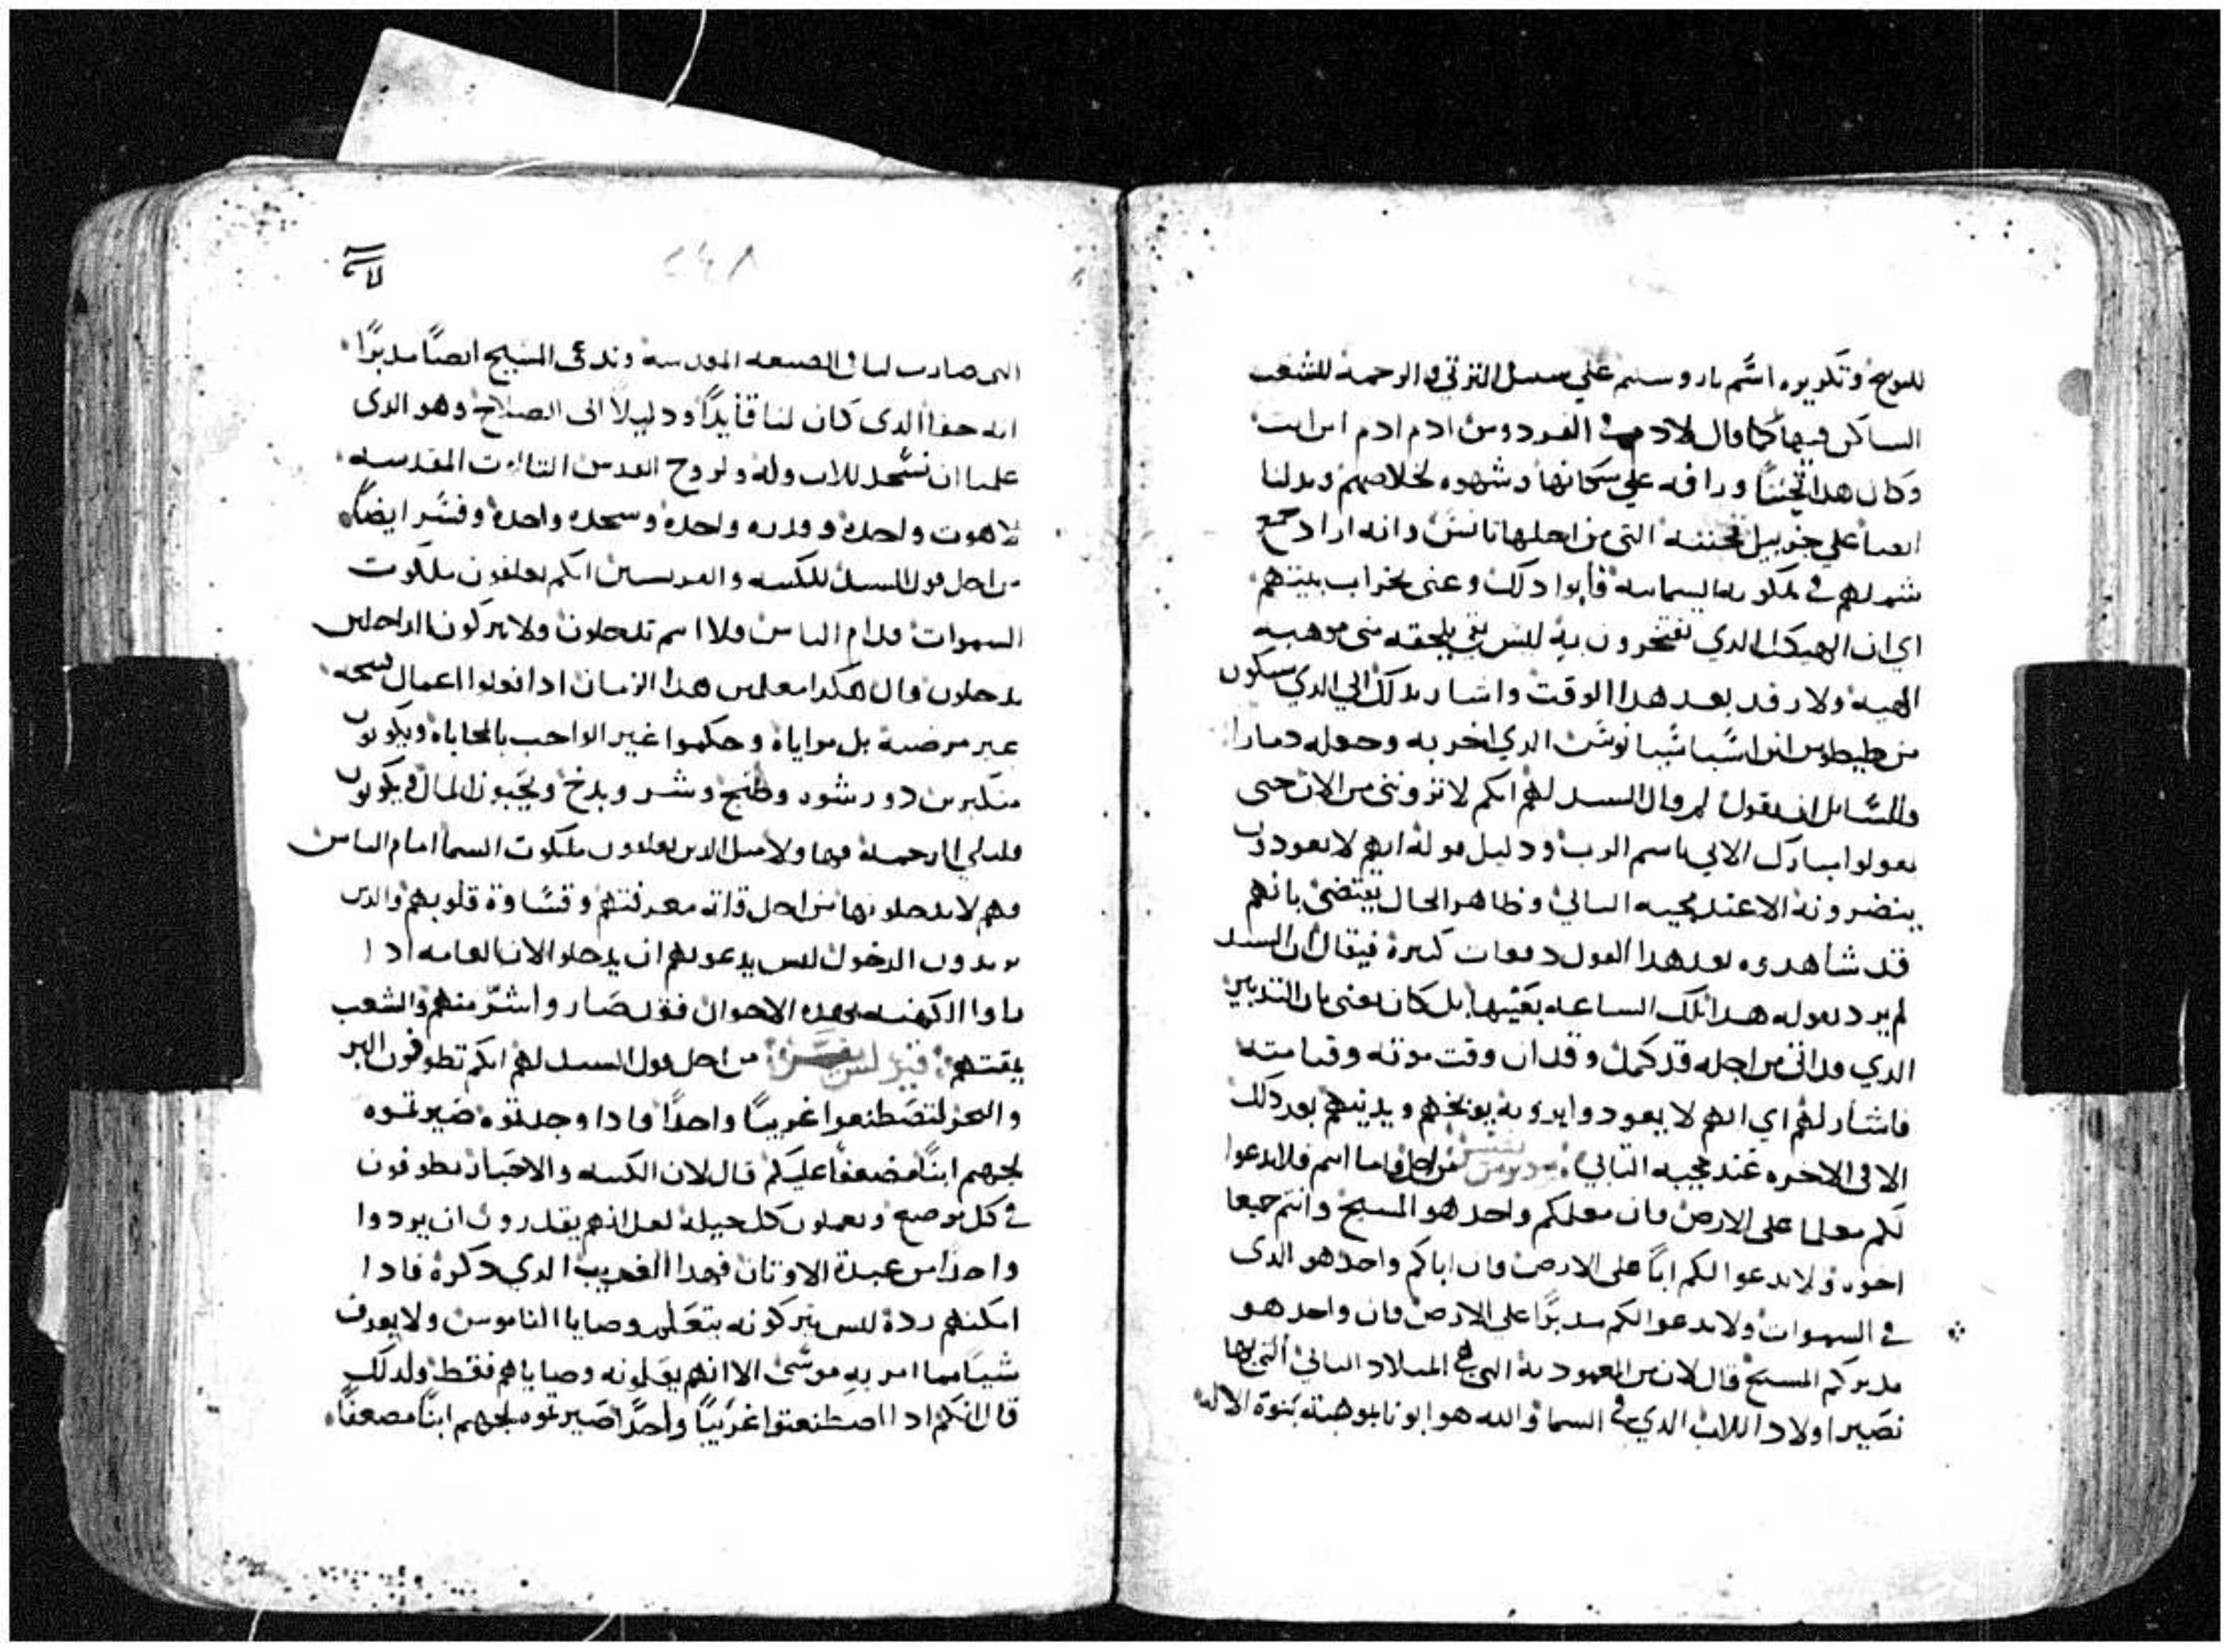 للتوبيخ وتكريره اسم ياروسليم علي سبيل الترتي والرحمة للشعب
الساكن فيها كما قال لادم في الفردوس ادم ادم اين انت
وكان هدا تحننا ورافه علي سكانها وشهوه لخلاصهم ويدلنا
ايضا علي جزيل تحننه التي من اجلها تانس وانه اراد جمع
شملهم في ملكوته السماييه فأبوا دلك وعنى بخراب بيتهم
اي ان الهيكل الدي تفتخرون به ليس بقي يلحقه مني موهبه
الهيه ولا رفد بعد هدا الوقت واشار بدلك الي الدي سيكون
من طيطوس ابن اشباشيانوس الدي اخربه وجعله دمارا
وللسايل ان يقول لم قال السيد لهم انكم لا تروني من الان حتى
تقولوا مبارك الاتي باسم الرب ودليل قوله انهم لا يعودون
ينضرونه الا عند مجيه التاني وظاهر الحال يقتضي بانهم
قد شاهدوه بعد هدا القول دفعات كتيرة فيقال ان السيد
لم يرد بقوله هدا تلك الساعه بعينها بل كان يعني بان التدبير
الدي قد اتى من اجله قد كمل وقد ان وقت موته وقيامته
فاشار لهم اي انهم لا يعودوا يرونه يوبخهم ويدينهم بعد دلك
الا في الاخره عند مجيه التاني من اجل فاما انتم فلا تدعوا
لكم معلما على الارض فان معلمكم واحد هو المسيح وانتم جميعا
اخوه ولا تدعوا لكم اباً على الارض فان اباكم واحد هو الدى
في السموات ولا تدعوا لكم مدبرًا على الارض فان واحد هو
مدبركم المسيح قال لان من المعموديه التي هي الميلاد التاني التي بها
نصير اولاد اللاب الدي في السما والله هو ابونا بموهبة بنوة الاله
التي صارت لنا في الصبغه المقدسه وندعى المسيح ايضًا مدبرًا
انه حقا الدى كان لنا قأيدًا ودليلاً الى الصلاح وهو الدى
علمنا ان نسجد للاب وله ولروح القدس التالوت المقدسه
لاهوت واحدة وقدره واحدة وسجده واحدة وفسر ايضًا
من اجل قول السيد للكتبه والفريسين انكم تغلقون ملكوت
السموات قدام الناس فلا انتم تدخلون ولا تتركون الداخلين
يدخلون قال هكدا معلمين هدا الزمان ادا تولوا اعمال سمجه
غير مرضية بل مراياة وحكموا غير الواجب بالمحاباة ويكونون
متكبرين دو رشوه وطنج وشر وبدخ ويحبون المال ويكونون
قليلي الرحمة فهاولا متل الدين يغلقون ملكوت السما امام الناس
وهم لا يدخلونها من اجل قلة معرفتهم وقساوة قلوبهم والدين
يريدون الدخول ليس يدعوهم ان يدخلوا لان العامه ادا
راوا الكهنه بهده الاحوال فقد صاروا اشرّ منهم والشعب
يمقتهم من اجل قول السيد لهم انكم تطوفون البر
والبحر لتصطنعوا غريبًا واحدًا فادا وجدتوه ضيرتموه
لجهنم ابنًا مضعفًا عليكم قال لان الكتبه والاحبار يطوفون
في كل موضع ويعملون كل حيلة لعل انهم يقدرون ان يردوا
واحدا من عبدة الاوتان فهدا الغريب الدي دكره فادا
امكنهم رده ليس يتركونه يتعلم وصايا الناموس ولا يعرف
شيا مما امر به موسى الا انهم يعلمونه وصاياهم فقط ولدلك
قال انكم ادا اصطنعتوا غريبًا واحدًا صيرتموه لجهنم ابنًا مضعفًا